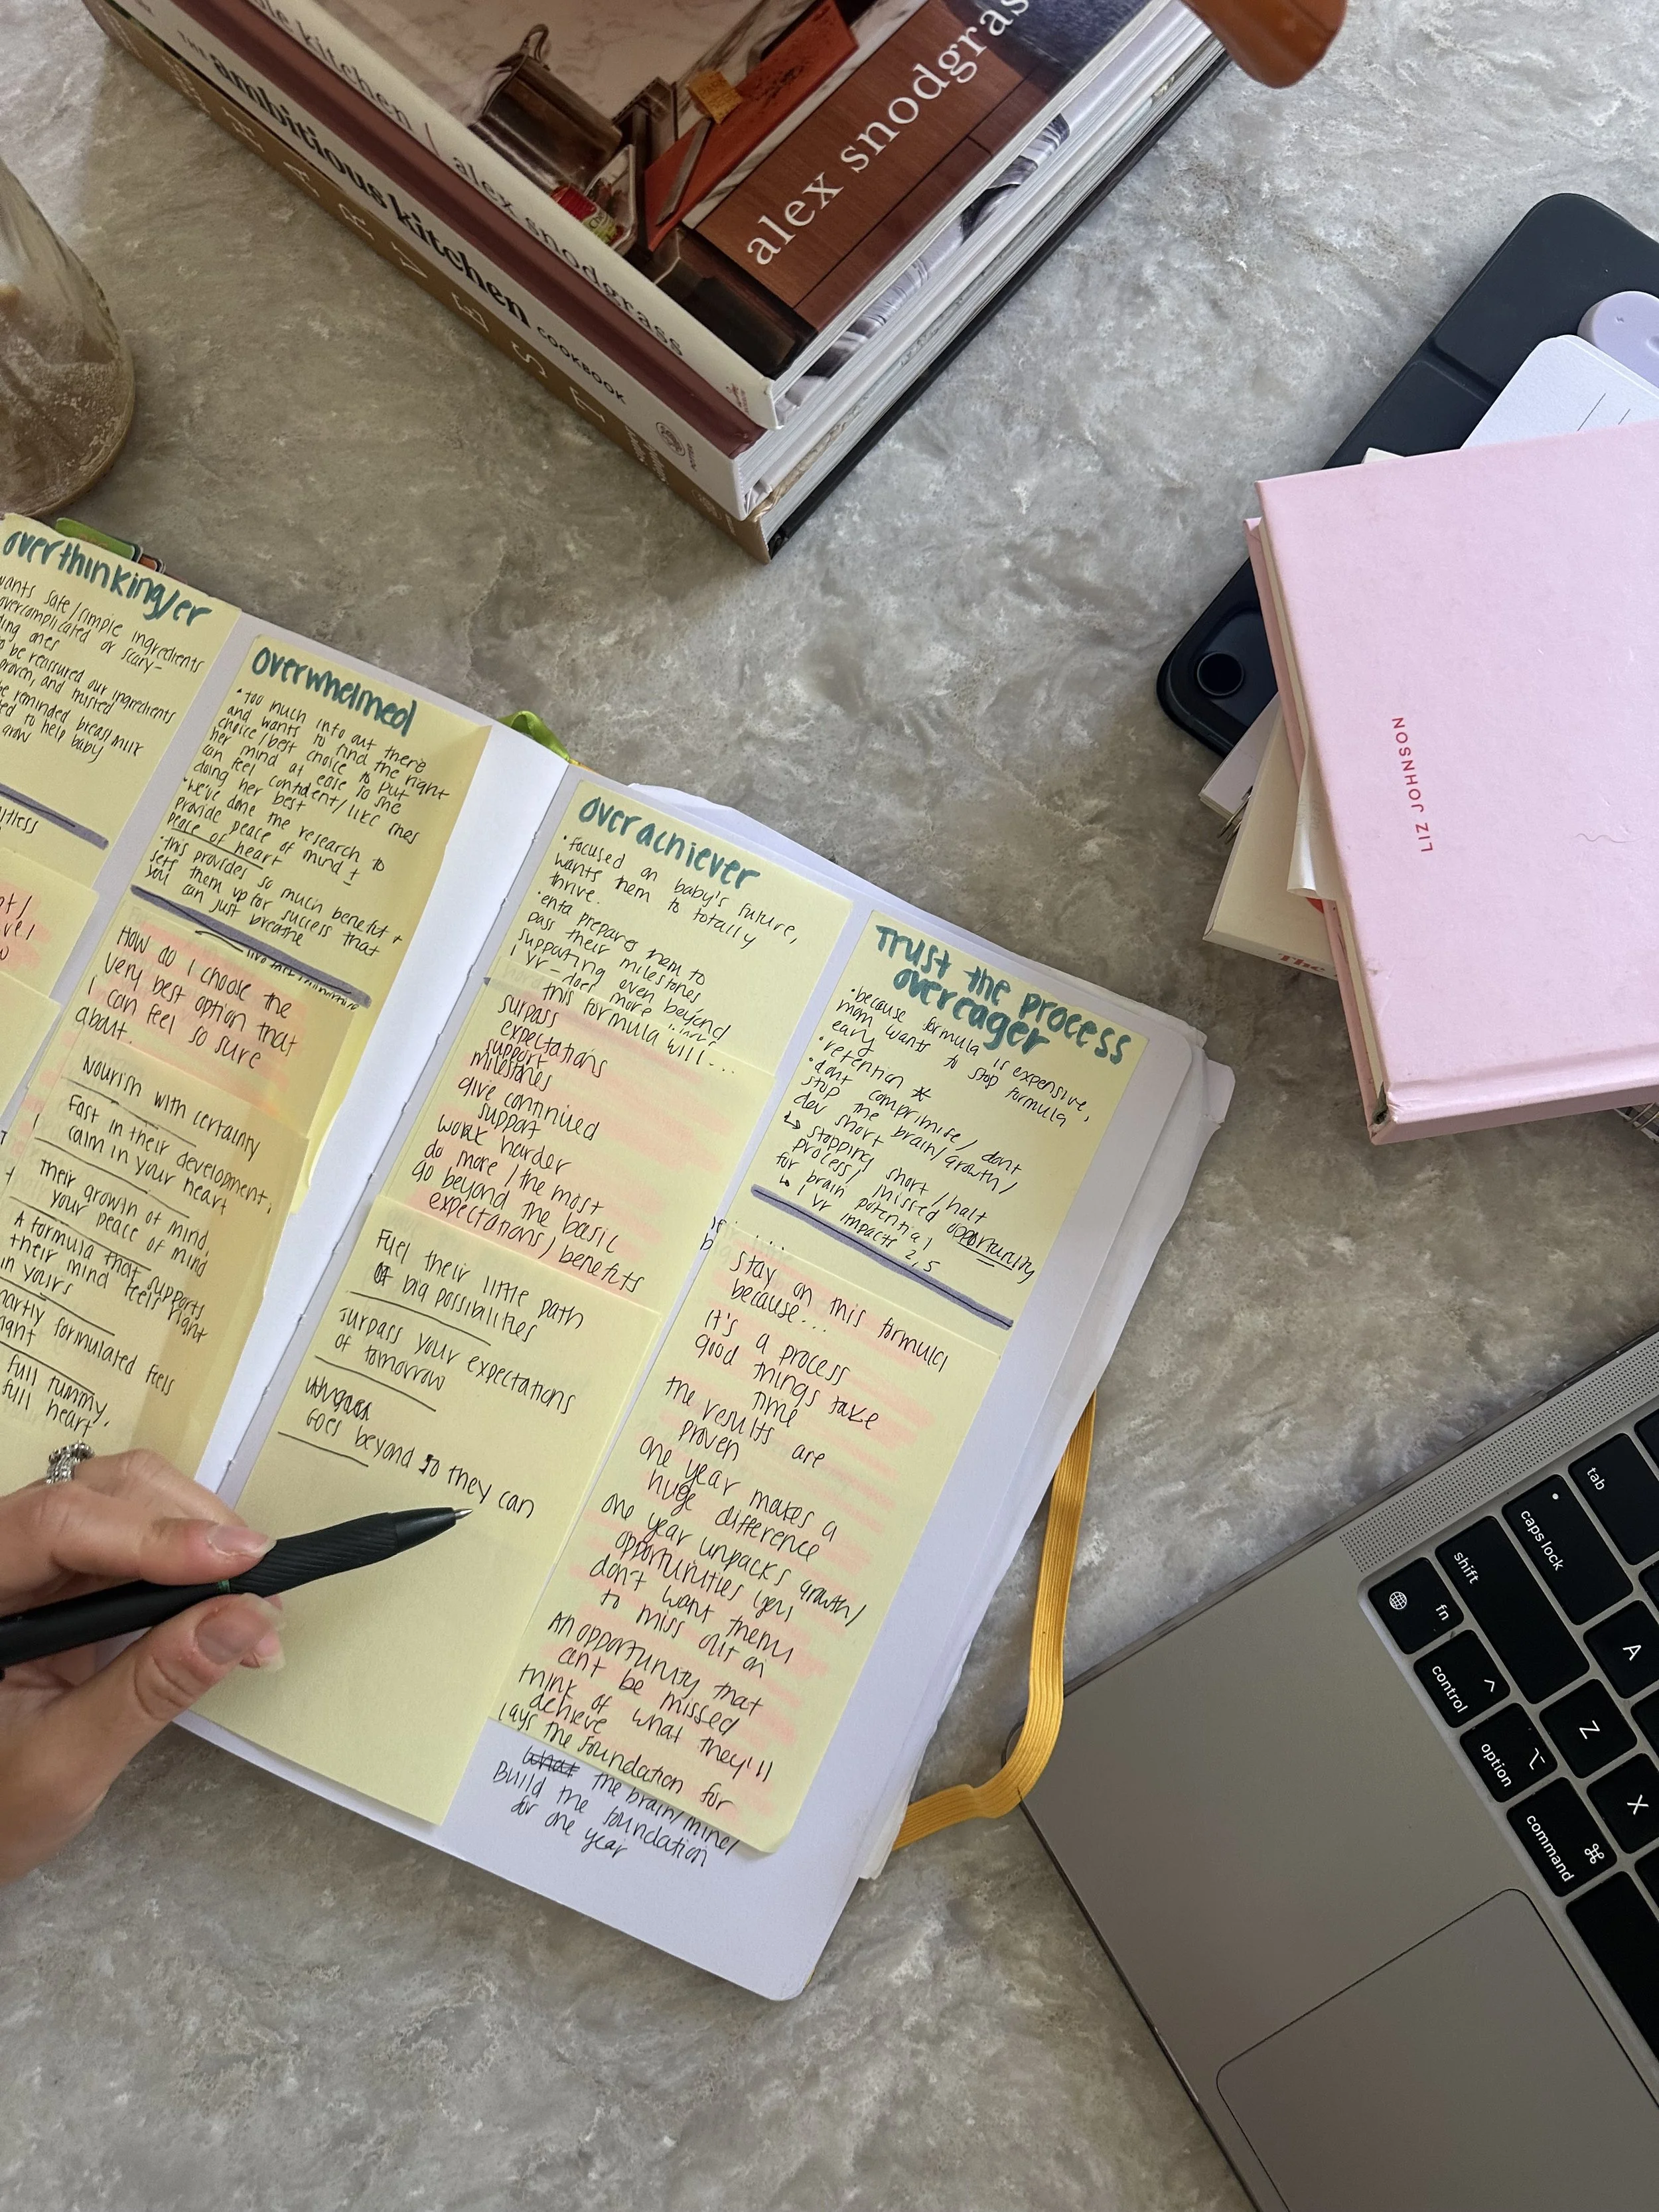 alex snodgrass
kitchen / alex snodgrass
THE ambitious kitchen COOKBOOK
HARVEST
LIZ JOHNSON
The
overthinking/er
wants safe/simple ingredients
overcomplicated or scary-
ones
to be reassured our ingredients
proven, and trusted
be reminded breast milk
to help baby
grow
overwhelmed
• too much info out there
and wants to find the right
choice/best choice to put
her mind at ease so she
can feel confident/like shes
doing her best
• we've done the research to
provide peace of mind +
peace of heart
• this provides so much benefit +
sets them up for success that
you can just breathe
How do I choose the
very best option that
I can feel so sure
about.
Nourish with certainty
Fast in their development,
calm in your heart
Their growth of mind,
your peace of mind
A formula that supports
their mind feels right
in yours
smartly formulated feels
full tummy,
full heart
overachiever
• focused on baby's future,
wants them to totally
thrive.
• enfa prepares them to
pass their milestones
supporting even beyond
1 yr - does more
this formula will...
surpass
expectations
support
milestones
give continued
support
work harder
do more / the most
go beyond the basic
expectations/benefits
Fuel their little path
of big possibilities
surpass your expectations
of tomorrow
Goes beyond so they can
Trust the process
overeager
• because formula is expensive,
mom wants to stop formula
early
• retention *
• dont comprimise/dont
stop the brain/growth/
dev short
↳ stopping short/halt
process/missed opportunity
for brain potential
↳ 1 yr impacts 2, 5
Stay on this formula
because...
It's a process
good things take
time
the results are
proven
one year makes a
huge difference
one year unpacks growth/
opportunities you
don't want them
to miss out on
An opportunity that
cant be missed
think of what they'll
achieve
lays the foundation for
what the brain/mind/
Build the foundation
for one year
tab
caps lock
shift
fn
control
option
command
A
Z
X